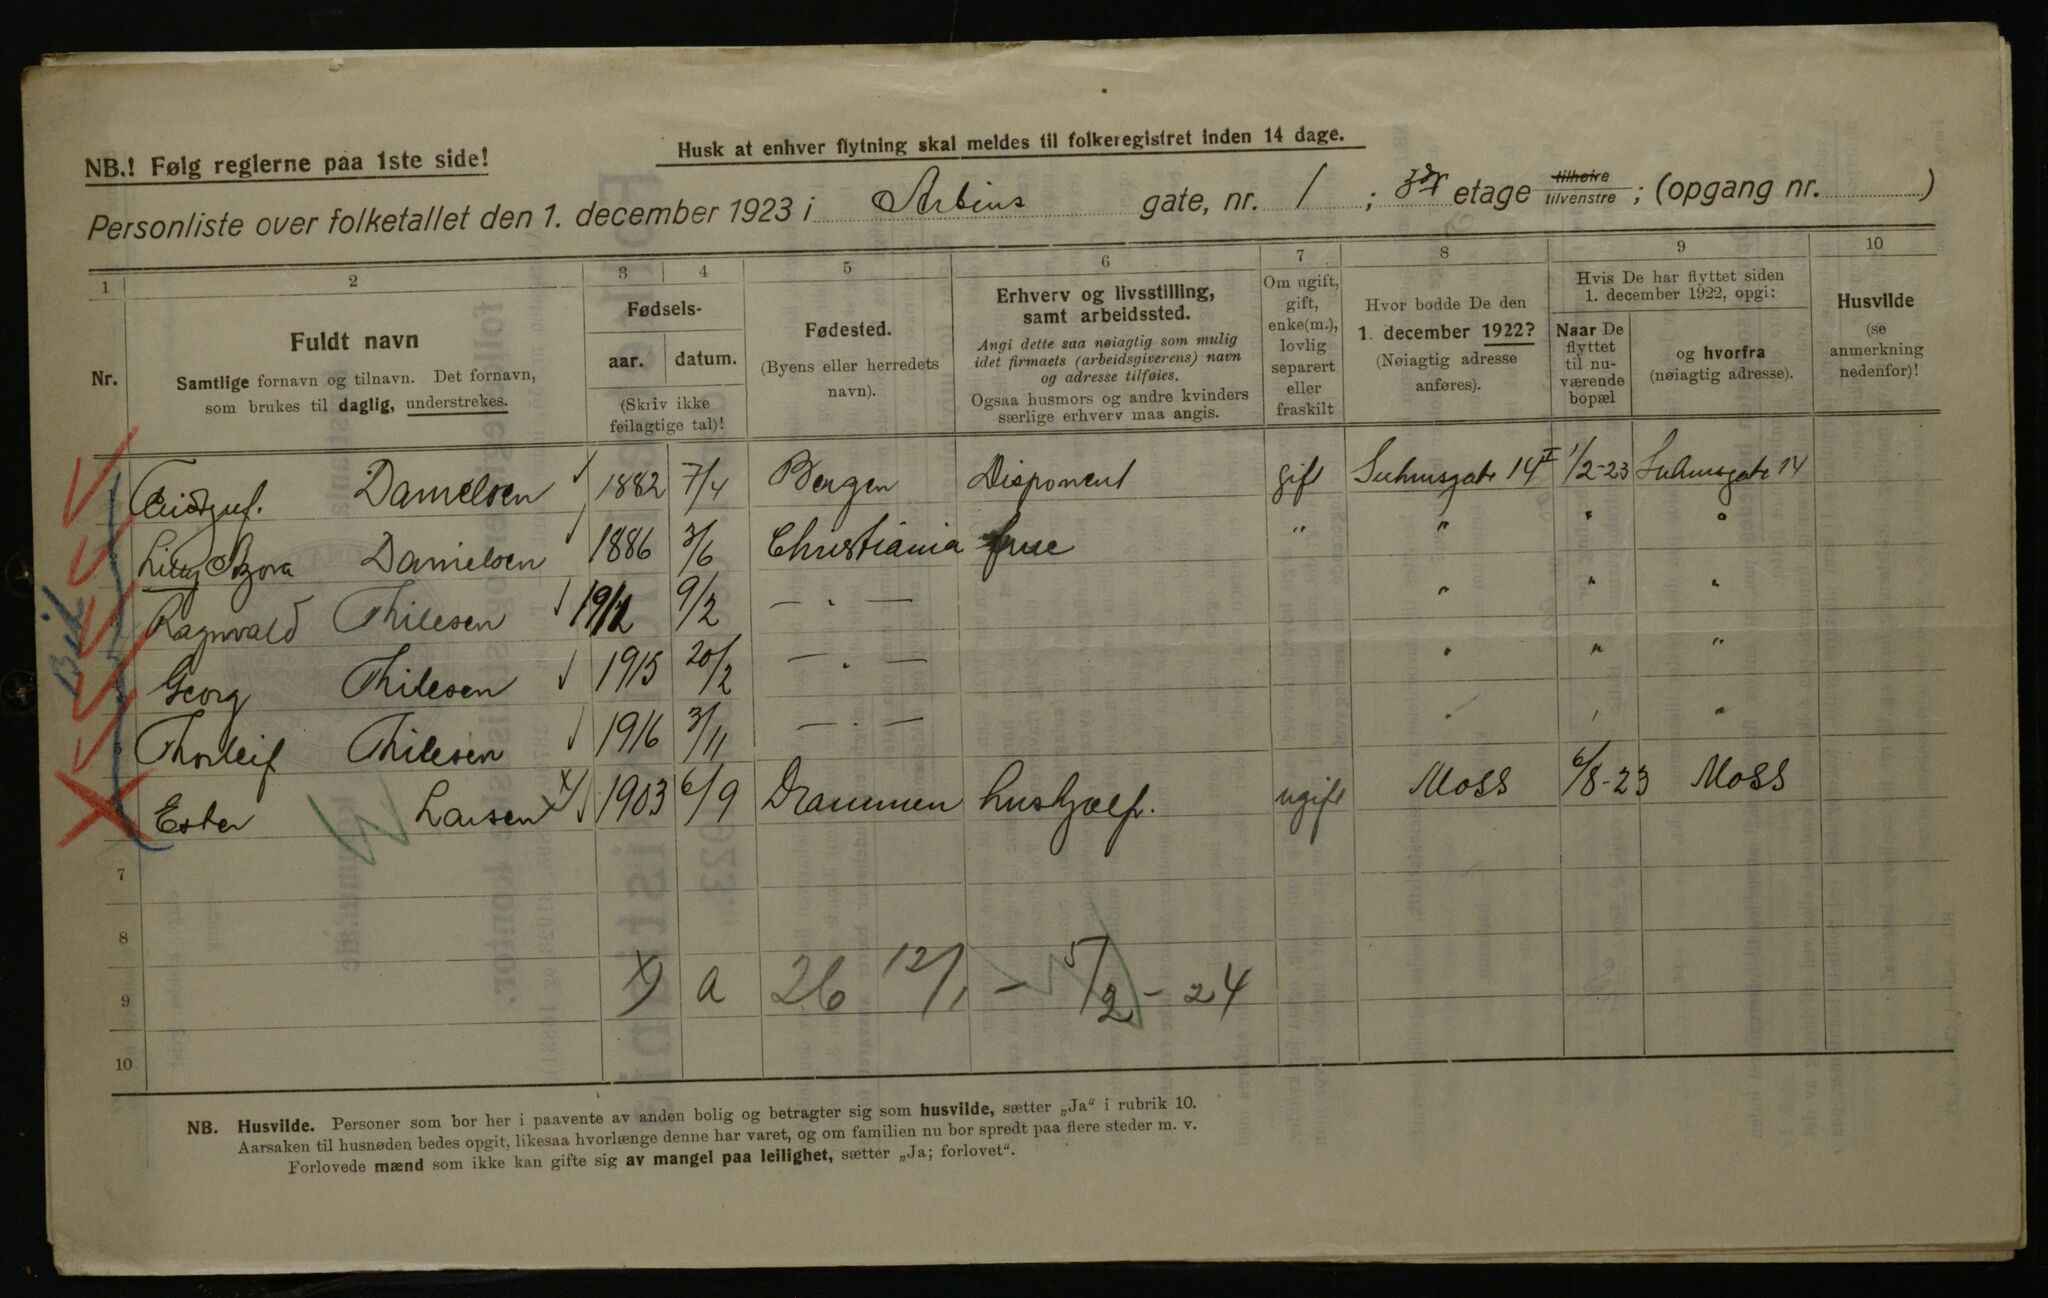 NB.! Følg reglerne paa 1ste side!
Husk at enhver flytning skal meldes til folkeregistret inden 14 dage.
Personliste over folketallet den 1. december 1923 i Arbins gate, nr. 1 ; 3dr etage tilhøire tilvenstre ; (opgang nr. )
1 2 3 4 5 6 7 8 9 10
Nr.
Fuldt navn
Samtlige fornavn og tilnavn. Det fornavn,
som brukes til daglig, understrekes.
Fødsels-
aar. datum.
(Skriv ikke
feilagtige tal)!
Fødested.
(Byens eller herredets
navn).
Erhverv og livsstilling,
samt arbeidssted.
Angi dette saa nøiagtig som mulig
idet firmaets (arbeidsgiverens) navn
og adresse tilføies.
Ogsaa husmors og andre kvinders
særlige erhverv maa angis.
Om ugift,
gift,
enke(m.),
lovlig
separert
eller
fraskilt
Hvor bodde De den
1. december 1922?
(Nøiagtig adresse
anføres).
Hvis De har flyttet siden
1. december 1922, opgi:
Naar De
flyttet
til nu-
værende
bopæl
og hvorfra
(nøiagtig adresse).
Husvilde
(se
anmerkning
nedenfor)!
Danielsen 1882 7/4 Bergen Disponent gift Suhmsgate 14 II 1/2-23 Suhmsgate 14
Lilly Danielsen 1886 3/6 Christiania frue " " " "
Ragnvald Thilesen 1912 9/2 — " — " " "
Georg Thilesen 1915 20/2 — " — " " "
Thorleif Thilesen 1916 3/11 — " — " " "
Ester Larsen x) 1903 6/9 Drammen Hushjælp. ugift Moss 6/8-23 Moss
7
8
9 x) a 26 12/1 - 5/2 - 24
10
NB. Husvilde. Personer som bor her i paavente av anden bolig og betragter sig som husvilde, sætter „Ja" i rubrik 10.
Aarsaken til husnøden bedes opgit, likesaa hvorlænge denne har varet, og om familien nu bor spredt paa flere steder m. v.
Forlovede mænd som ikke kan gifte sig av mangel paa leilighet, sætter „Ja; forlovet".